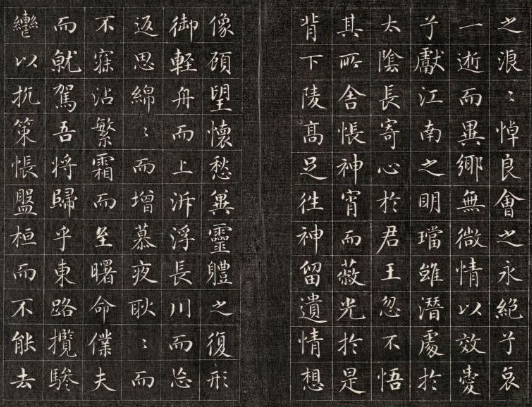 之浪〻悼良會之永絶兮哀
一逝而異鄉無微情以效愛
兮獻江南之明璫雖潛處於
太陰長寄心於君王忽不悟
其所舍悵神宵而蔽光於是
背下陵高足往神留遺情想
像頋望懷愁冀靈體之復形
御輕舟而上泝浮長川而忘
返思綿〻而增慕夜耿〻而
不寐沾繁霜而至曙命僕夫
而就駕吾將歸乎東路攬騑
轡以抗策悵盤桓而不能去